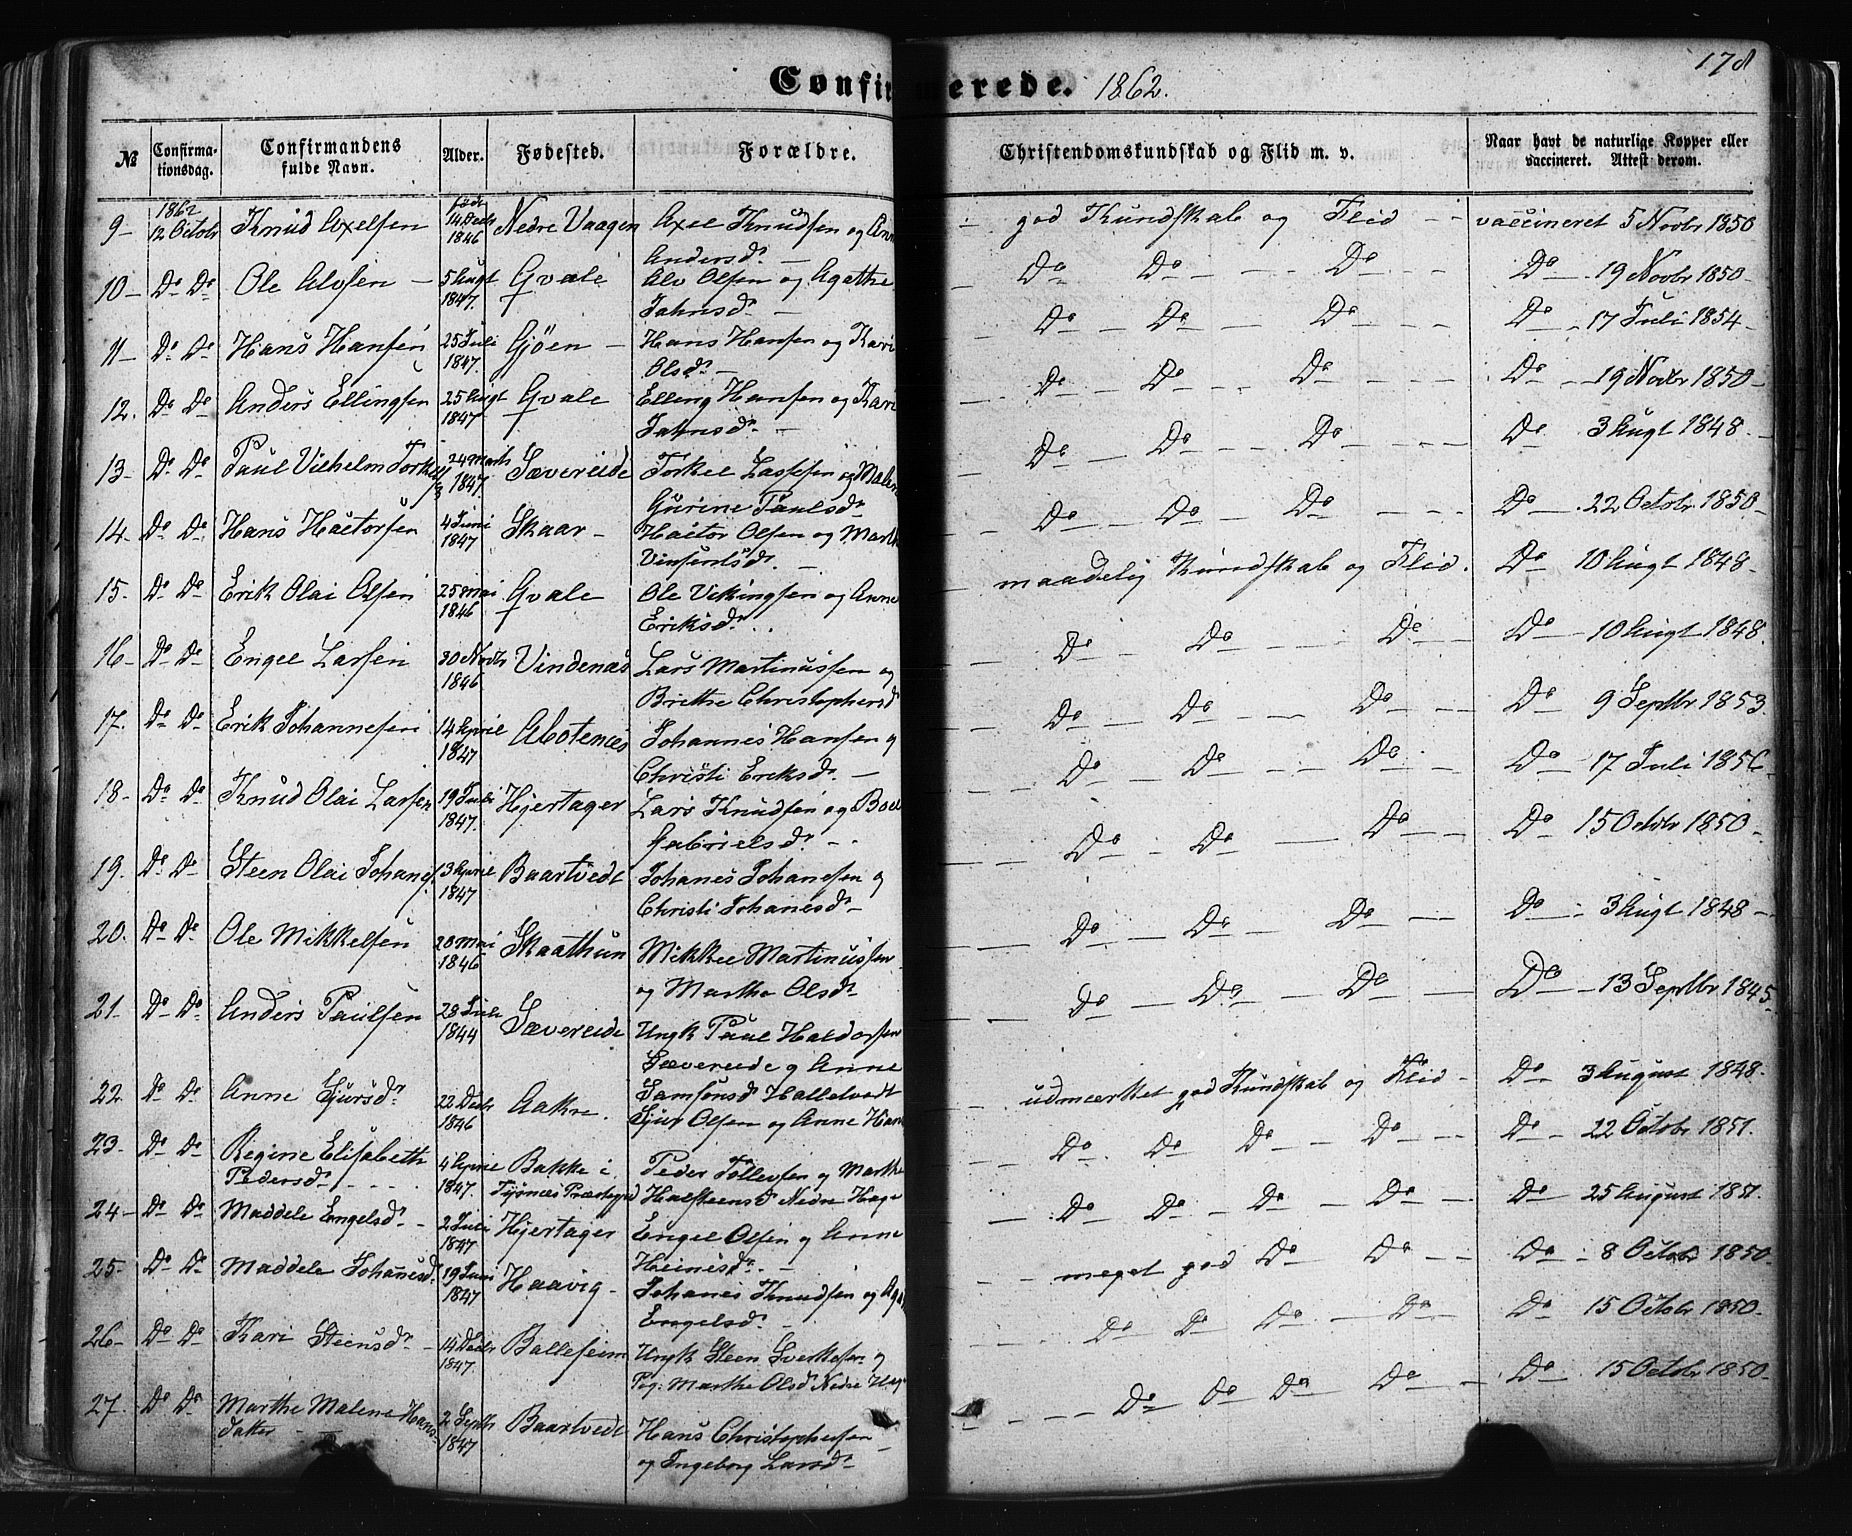 178
Confirmerede. 1862.
№ Confirmationsdag. Confirmandens fulde Navn. Alder. Fødested. Forældre. Christendomskundskab og Flid m. v. Naar havt de naturlige Kopper eller vaccineret. Attest derom.
9 - 1862 12 Octobr Knud Axelsen født 14 Decbr 1846 Nedre Vaagen Axel Knudsen og Anne - god Kundskab og Flid - - vaccineret 5 Novbr 1850
Andersdr. -
10 - Do Do Ole Alvsen - 5 Augt 1847. Gvale Alv Olsen og Agathe - Do Do - - Do - - Do - 19 Novbr 1850 -
Jahnsdr. -
11 - Do Do Hans Hansen 25 Juli 1847. Gjøen - Hans Hansen og Kari - Do - Do - - Do - - Do - 17 Juli 1854 -
Olsdr. -
12. Do Do Anders Ellingsen 25 Augt 1847. Gvale Elling Hansen og Kari - Do - Do - - Do - - Do - 19 Novbr 1850 -
Jahnsdr. -
13 - Do Do Paul Vilhelm Torkels. 24 Marts 1847. Sævereide Torkel Lassesen og Malene - Do - Do - - Do - - Do 3 Augt 1848 -
Gurine Paulsdr.
14 - Do Do Hans Hactorsen 4 Juni 1847 Skaar - Hactor Olsen og Martha - Do - Do - Do - - - Do - 22 Octobr 1850 -
Vinsentsdr. -
15. Do Do Erik Olai Olsen 25 Mai 1846 Gvale Ole Vikingsen og Anne - maadelig Kundskab og Flid. Do - 10 Augt 1848 -
Eriksdr.
16 - Do Do Engel Larsen 30 Novbr 1846 Vindenæs Lars Martinussen og - Do - Do - - Do - Do - 10 Augt 1848.
Brithe Christophersdr
17. Do Do Erik Johannesen 14 April 1847 Abotenæs Johannes Hansen og - Do - Do - - Do - - Do - 9 Septbr 1853.
Christi Eriksdr. -
18 - Do Do Knud Olai Larsen 19 Juli 1847. Hjertager Lars Knudsen og Boel - Do - Do - - Do - - Do - 17 Juli 1856 -
Gabrielsdr. -
19. Do Do Steen Olai Johanes. 13 April 1847 Baartvedt Johanes Johanesen og - Do - Do - Do - - Do - 15 Octobr 1850 -
Christi Johanesdr -
20. Do Do Ole Mikkelsen 20 Mai 1846 Skaathun Mikkel Martinussen - Do - Do - Do - - Do - 3 Augt 1848 -
og Martha Olsdr
21. Do Do Anders Paulsen 28 Juli 1844 Sævereide Ungk Paul Haldorsen - Do - Do - Do - Do - 13 Septbr 1845
Sævereide og Anne
Samsonsd Halletvedt
22. Do Do Anne Sjursdr. 22 Decbr 1846 Aakre. Sjur Olsen og Anne Hans - udmærket god Kundskab og Flid - Do - 3 August 1848 -
23. Do Do Regine Elisabeth 4 April 1847. Bakke i Peder Tollevsen og Marthe - Do Do Do - Do - - Do - 22 Octobr 1851.
Pedersdr - - - Tysnæs Præstegjd Halsteensd Nedre Hage
24 - Do Do Maddele Engelsdr. - 2 Juli 1847 Hjertager Engel Olsen og Anne - Do - Do - Do - Do - - Do - 25 August 1851.
Heinesdr. -
25. Do Do Maddele Johanesd. 19 Juni 1847 Haavig - Johanes Knudsen og - meget god Do - Do - - Do - 8 Octobr 1850.
Engelsdr. -
26 - Do Do Kari Steensdr - 14 Decbr 1847. Balleseim Ungk Steen Sverkesen og Do Do Do - Do - Do - 15 Octobr 1850 -
Pig: Marthe Olsd Nedre Hage
27. Do Do Marthe Malene Hans- 2 Septbr 1847 Baartvedt Hans Christophersen - - - - Do Do Do Do - - Do - 15 Octobr 1850 -
datter - og Ingeborg Larsdr -